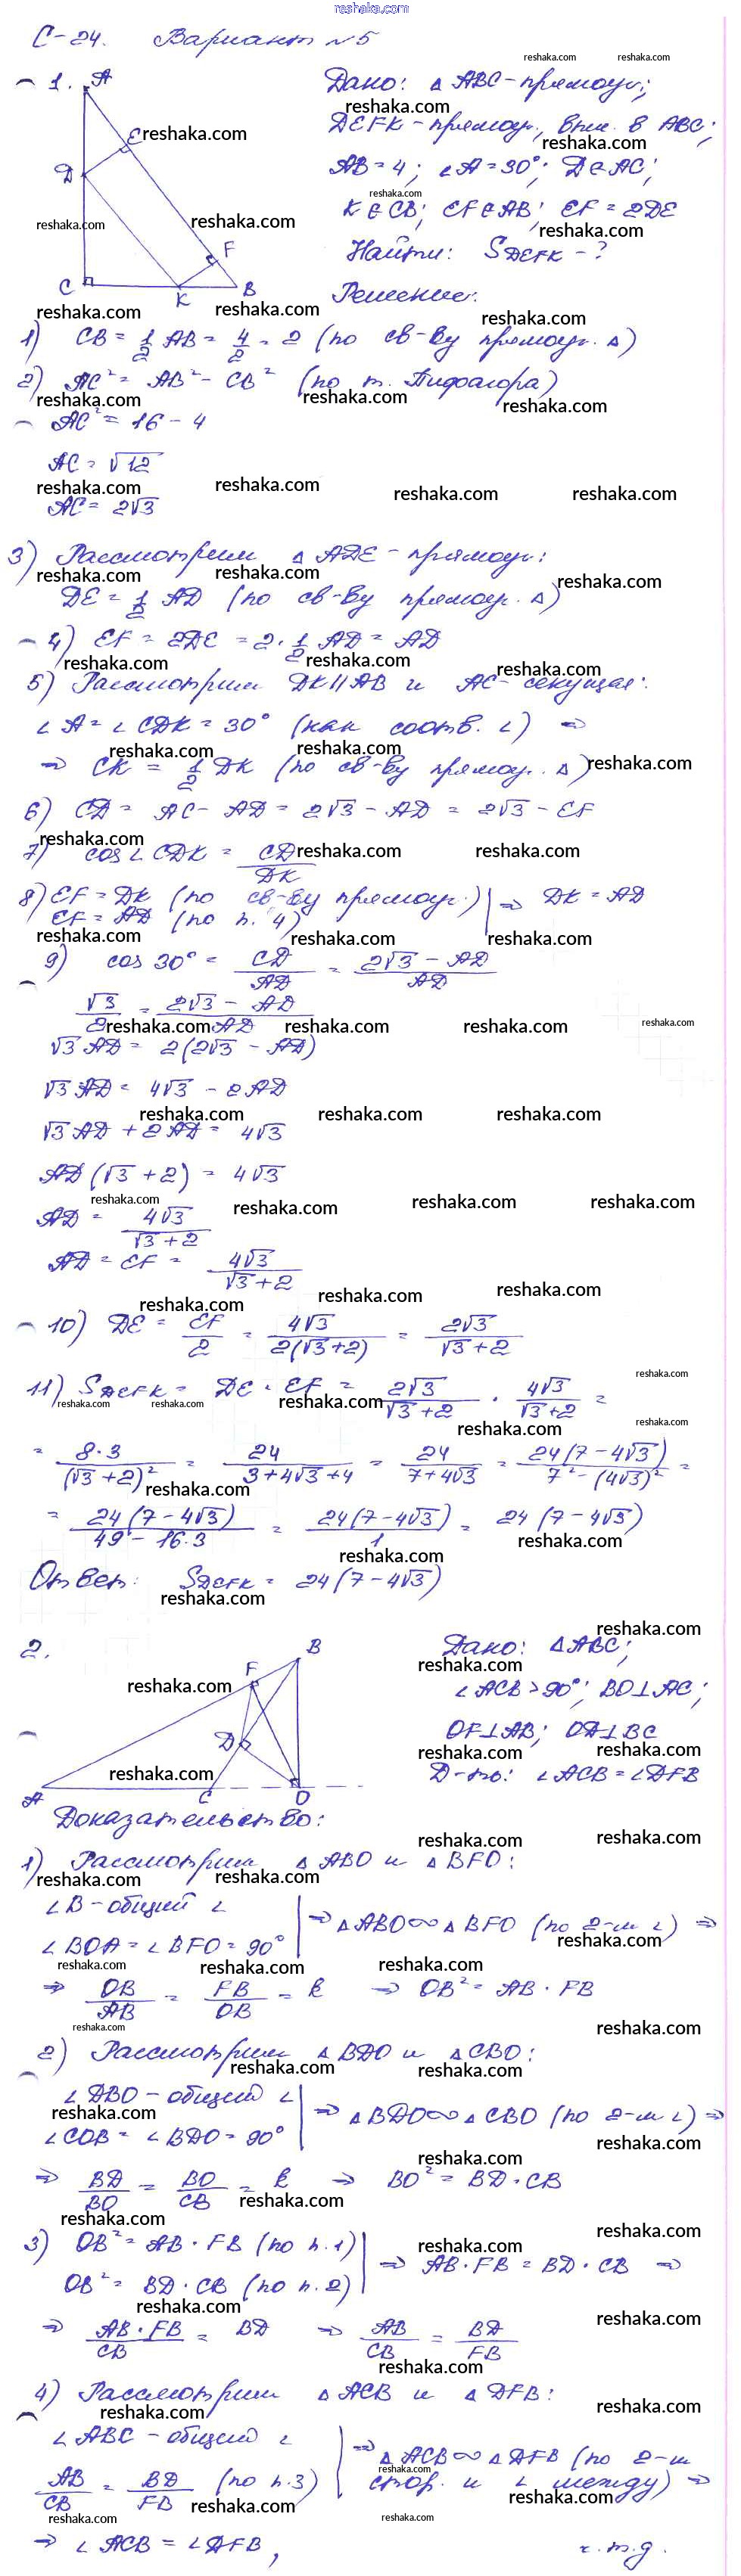 reshaka.com
С-24. Вариант №5
1. Дано: △ABC - прямоуг.;
DEFK - прямоуг., впис. в ABC;
AB = 4; ∠A = 30°; D∈AC;
K∈CB; EF∈AB; EF = 2DE
Найти: S DEFK - ?
A
E
D
F
C
K
B
Решение:
1) CB = 1/2 AB = 4/2 = 2 (по св-ву прямоуг. △)
2) AC² = AB² - CB² (по т. Пифагора)
AC² = 16 - 4
AC = √12
AC = 2√3
3) Рассмотрим △ADE - прямоуг:
DE = 1/2 AD (по св-ву прямоуг. △)
4) EF = 2DE = 2 · 1/2 AD = AD
5) Рассмотрим DK ∥ AB и AC - секущая:
∠A = ∠CDK = 30° (как соотв. ∠) ⇒
⇒ CK = 1/2 DK (по св-ву прямоуг. △)
6) CD = AC - AD = 2√3 - AD = 2√3 - EF
7) cos∠CDK = CD/DK
8) EF = DK (по св-ву прямоуг.) | ⇒ DK = AD
EF = AD (по п. 4)
9) cos 30° = CD/AD = (2√3 - AD)/AD
√3/2 = (2√3 - AD)/AD
√3 AD = 2(2√3 - AD)
√3 AD = 4√3 - 2AD
√3 AD + 2AD = 4√3
AD(√3 + 2) = 4√3
AD = 4√3/(√3 + 2)
AD = EF = 4√3/(√3 + 2)
10) DE = EF/2 = 4√3/(2(√3+2)) = 2√3/(√3 + 2)
11) S DEFK = DE · EF = 2√3/(√3 + 2) · 4√3/(√3+2) =
= 8·3/(√3 + 2)² = 24/(3+4√3+4) = 24/(7+4√3) = 24(7 - 4√3)/(7² - (4√3)²) =
= 24(7 - 4√3)/(49 - 16·3) = 24(7 - 4√3)/1 = 24(7 - 4√3)
Ответ: S DEFK = 24(7 - 4√3)
2. Дано: △ABC;
∠ACB > 90°; BO⊥AC;
OF⊥AB; OD⊥BC
Д-ть: ∠ACB = ∠DFB
B
F
D
A
C
O
Доказательство:
1) Рассмотрим △ABO и △BFO:
∠B - общий ∠ | ⇒ △ABO ∾ △BFO (по 2-м ∠) ⇒
∠BOA = ∠BFO = 90°
⇒ OB/AB = FB/OB = k ⇒ OB² = AB · FB
2) Рассмотрим △BDO и △CBO:
∠DBO - общий ∠ | ⇒ △BDO ∾ △CBO (по 2-м ∠) ⇒
∠COB = ∠BDO = 90°
⇒ BD/BO = BO/CB = k ⇒ BO² = BD · CB
3) OB² = AB · FB (по п. 1) | ⇒ AB · FB = BD · CB ⇒
OB² = BD · CB (по п. 2)
⇒ AB · FB/CB = BD ⇒ AB/CB = BD/FB
4) Рассмотрим △ACB и △DFB:
∠ABC - общий ∠ | ⇒ △ACB ∾ △DFB (по 2-м
AB/CB = BD/FB (по п. 3) | стор. и ∠ между) ⇒
⇒ ∠ACB = ∠DFB, ч.т.д.